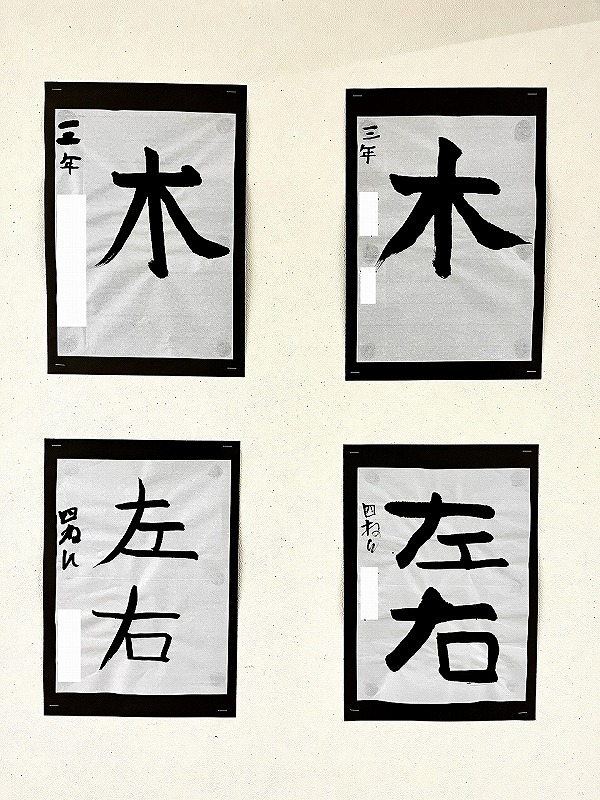 木
三年
木
三年
左
右
四ねん
左
右
四ねん